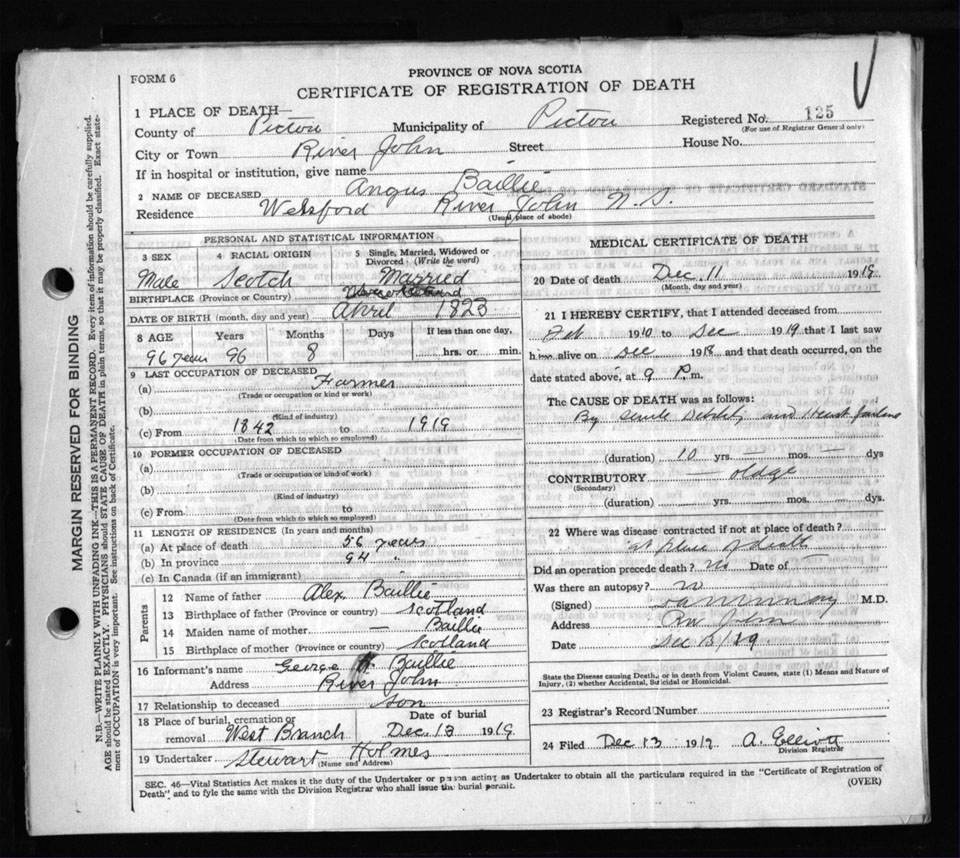 PROVINCE OF NOVA SCOTIA
FORM 6
CERTIFICATE OF REGISTRATION OF DEATH
1 PLACE OF DEATH—
County of Pictou Municipality of Pictou Registered No. 125
(For use of Registrar General only)
City or Town River John Street House No.
If in hospital or institution, give name
2 NAME OF DECEASED Angus Baillie
Residence Welsford River John N.S.
(Usual place of abode)
PERSONAL AND STATISTICAL INFORMATION
3 SEX 4 RACIAL ORIGIN 5 Single, Married, Widowed or Divorced (Write the word)
Male Scotch Married
BIRTHPLACE (Province or Country)
DATE OF BIRTH (month, day and year) April 1823
8 AGE Years Months Days If less than one day,
96 years 96 8 hrs. or min.
9 LAST OCCUPATION OF DECEASED
(a) Farmer
(Trade or occupation or kind of work)
(b)
(Kind of industry)
(c) From 1842 to 1919
(Date from which to which so employed)
10 FORMER OCCUPATION OF DECEASED
(a)
(Trade or occupation or kind of work)
(b)
(Kind of industry)
(c) From to
(Date from which to which so employed)
11 LENGTH OF RESIDENCE (In years and months)
(a) At place of death 56 years
(b) In province 94 "
(c) In Canada (if an immigrant)
Parents
12 Name of father Alex Baillie
13 Birthplace of father (Province or country) Scotland
14 Maiden name of mother — Baillie
15 Birthplace of mother (Province or country) Scotland
16 Informant's name George Baillie
Address River John
17 Relationship to deceased Son
18 Place of burial, cremation or removal West Branch Date of burial Dec. 13 1919
19 Undertaker Stewart Holmes
(Name and Address)
MEDICAL CERTIFICATE OF DEATH
20 Date of death Dec 11 1919
(Month, day and year)
21 I HEREBY CERTIFY, that I attended deceased from
Feb 1910 to Dec 1919 that I last saw
him alive on Dec 1918 and that death occurred, on the
date stated above, at 9 P.m.
The CAUSE OF DEATH was as follows:
By Senile Debility and Heart failure
(duration) 10 yrs. — mos. — dys
CONTRIBUTORY — old age
(Secondary)
(duration) — yrs. — mos. — dys.
22 Where was disease contracted if not at place of death?
at place of death
Did an operation precede death? no Date of
Was there an autopsy? no
(Signed) M.D.
Address
Date Dec 13/19
State the Disease causing Death, or in death from Violent Causes, state (1) Means and Nature of
Injury, (2) whether Accidental, Suicidal or Homicidal.
23 Registrar's Record Number
24 Filed Dec 13 1919 A. Elliott
Division Registrar
SEC. 46—Vital Statistics Act makes it the duty of the Undertaker or person acting as Undertaker to obtain all the particulars required in the "Certificate of Registration of
Death" and to fyle the same with the Division Registrar who shall issue the burial permit.
(OVER)
MARGIN RESERVED FOR BINDING
N.B.—WRITE PLAINLY WITH UNFADING INK—THIS IS A PERMANENT RECORD. Every item of information should be carefully supplied.
AGE should be stated EXACTLY. PHYSICIANS should STATE CAUSE OF DEATH in plain terms, so that it may be properly classified. Exact state-
ment of OCCUPATION is very important. See instructions on back of Certificate.